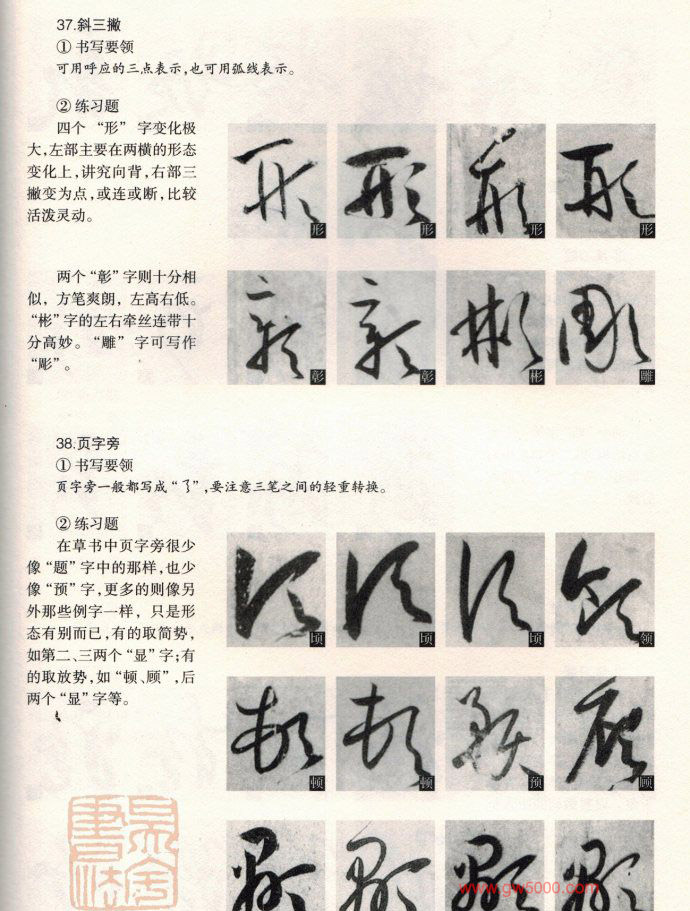 37.斜三撇
①书写要领
可用呼应的三点表示,也可用弧线表示。
②练习题
四个“形”字变化极
大,左部主要在两横的形态
变化上,讲究向背,右部三
撇变为点,或连或断,比较
活泼灵动。
形 形 形 形
两个“彰”字则十分相
似,方笔爽朗,左高右低。
“彬”字的左右牵丝连带十
分高妙。“雕”字可写作
“彫”。
彰 彰 彬 雕
38.页字旁
①书写要领
页字旁一般都写成“”,要注意三笔之间的轻重转换。
②练习题
在草书中页字旁很少
像“题”字中的那样,也少
像“预”字,更多的则像另
外那些例字一样,只是形
态有别而已,有的取简势,
如第二、三两个“显”字;有
的取放势,如“顿、顾”,后
两个“显”字等。
顷 顷 顷 领
顿 顿 预 顾
www.gw5000.com